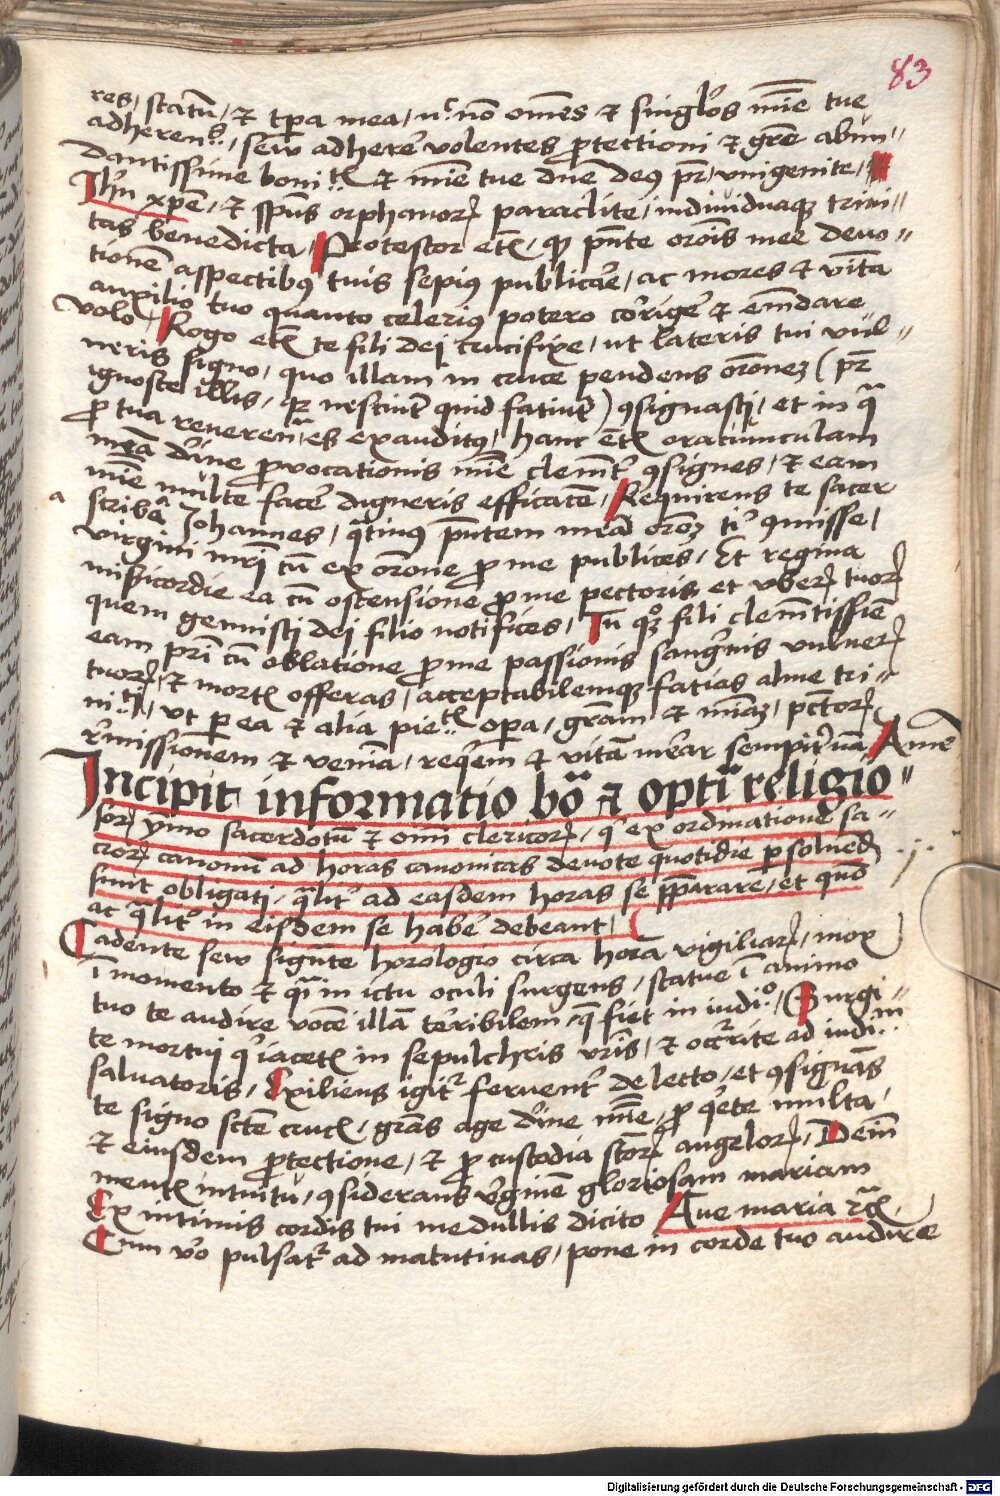 83
res / statū / et tp̄a mea / nc̄ nō om̄es et singlos mīe tue
adheren̄s / seu adhere volentes ꝓtectioni et gr̄e abūn⸗
dantissime boni..tꝭ et mīe tue dn̄e deꝰ pr̄ / vnigenite /
Ihū xp̄e / et sp̄us orphanoꝝ paraclite / indiuiduaqꝫ trini⸗
tas benedicta / Protestor etꝭ / qꝫ pn̄te orōis mee deuo⸗
tionē aspectibꝰ tuis sepiꝰ publicare / ac mores et vitā
auxilio tuo quanto celeriꝰ potero corrige et em̄dare
volo / Rogo etꝭ te fili dei crucifixe / ut lateris tui vul⸗
neris signo / quo illam in cruce pendens orōneꝫ ( pr̄
ignosce illis / qꝛ nesciūt quid faciūt ) ꝯsignasti / et in qͣ
ꝓ tua reuerenͣ es exauditꝰ / hanc etꝭ oraciunculam
meā dīne ꝓuocationis mīe clemt̄ ꝯsignes / et eam
mīe multe face digneris efficacē / Requirens te sacer
a scriba Johannes / qͣtinꝰ pn̄tem meā orōꝫ ti ꝯmisse /
virgini mr̄i cū ex orōne ꝓ me publices / Et regina
misicordie ea cū ostensione ꝓ me pectoris et vberꝝ tuoꝝ
quem genuisti dei filio notifices / Tu qꝫ fili clemētissīe
eam pri cū oblatione ꝓ me passionis sangnis vulnerꝝ
tuoꝝ / et mortꝭ offeras / acceptabilemqꝫ facias alme tri⸗
ni..tꝭ / vt per ea et alia pie..tꝭ opa / grām et mīaꝫ / pctōrꝝ
remissionem et veniā / reqem et vitam merear sempitnā / Amē
Incipit informatio boͣ et optiͣ religio⸗
soꝝ ymo sacerdotū et om̄i clericoꝝ / qͥ ex ordinatione sa⸗
croꝝ canonū ad horas canonicas deuote quotidie ꝑsoluēd
sunt obligati / qͣlit ad easdem horas se p̄pararē / et quō
ac qͣlit in eisdem se habe debeant /
Cadente seu signāte horologio circa horā vigiliaꝝ / mox
ī momento et qͣsi in ictu oculi surgens / statue ī animo
tuo te audire vocē illā teribilem / q̄ fiet in iudiͦ / Surgi⸗
te mortui qͥ iacetꝭ in sepulchris vr̄is / et occrrite ad iudi..m
saluatoris / Exiliens igit feruent de lecto / et ꝯsignās
te signo scte crucꝭ / grās age dīne mīe / ꝓ qete multa /
et eiusdem ꝓtectione / et ꝓ custodia scōrꝝ angeloꝝ / Dein̄
mentꝭ intuitū / ꝯsiderans v̓ginē gloriosam mariam
Ex intimis cordis tui medullis dicito Aue maria rcꝭ /
Cum v̓o pulsat̓ ad matutinas / pone in corde tuo audire
Digitalisierung gefördert durch die Deutsche Forschungsgemeinschaft - DFG